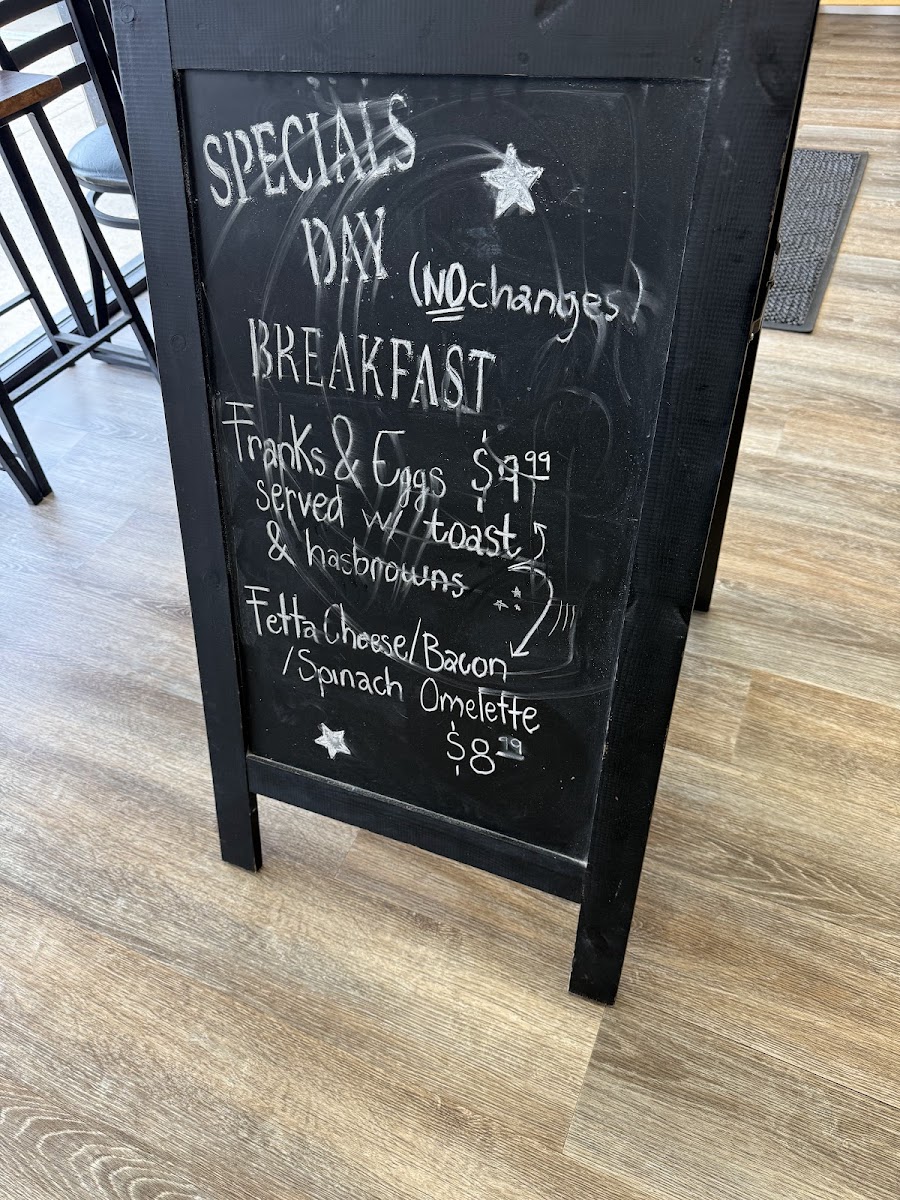 SPECIALS
DAY
(NO changes)
BREAKFAST
Franks & Eggs $9.99
served w/ toast
& hasbrowns
Fetta Cheese/Bacon
/Spinach Omelette
$8.99